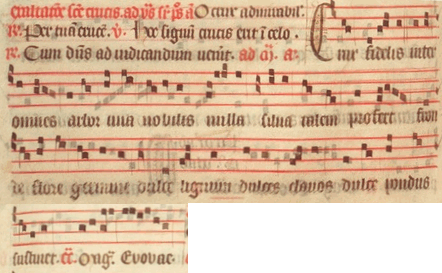 O crux admirabil'.
R. Per tuā crucē. V. Hoc signū crucis erit ī celo.
R. Cum dn̄s ad iudicandum uenit. ad Crux fidelis inter
omnes arbor una nobilis nulla silua talem profert fron
de flore germine dulce lignum dulces clauos dulce pondus
sustinet. Evovae.